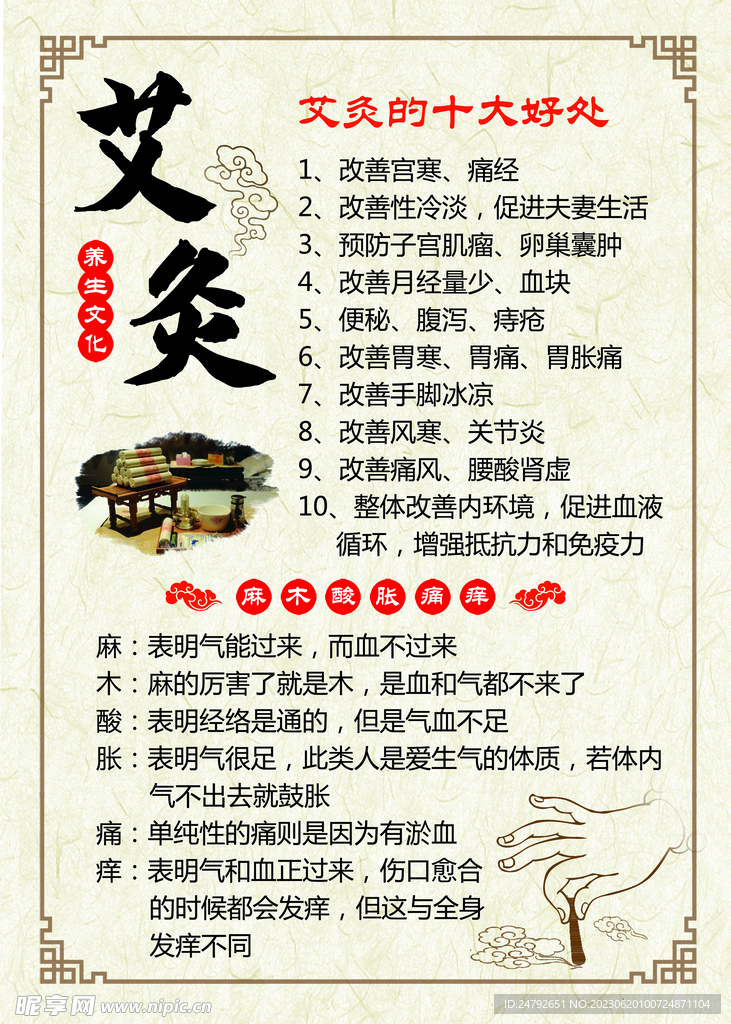 艾灸
养生文化
艾灸的十大好处
1、改善宫寒、痛经
2、改善性冷淡，促进夫妻生活
3、预防子宫肌瘤、卵巢囊肿
4、改善月经量少、血块
5、便秘、腹泻、痔疮
6、改善胃寒、胃痛、胃胀痛
7、改善手脚冰凉
8、改善风寒、关节炎
9、改善痛风、腰酸肾虚
10、整体改善内环境，促进血液
循环，增强抵抗力和免疫力
麻木酸胀痛痒
麻：表明气能过来，而血不过来
木：麻的厉害了就是木，是血和气都不来了
酸：表明经络是通的，但是气血不足
胀：表明气很足，此类人是爱生气的体质，若体内
气不出去就鼓胀
痛：单纯性的痛则是因为有淤血
痒：表明气和血正过来，伤口愈合
的时候都会发痒，但这与全身
发痒不同
昵享网 www.nipic.cn
ID:24792651 NO:20230620100724871104